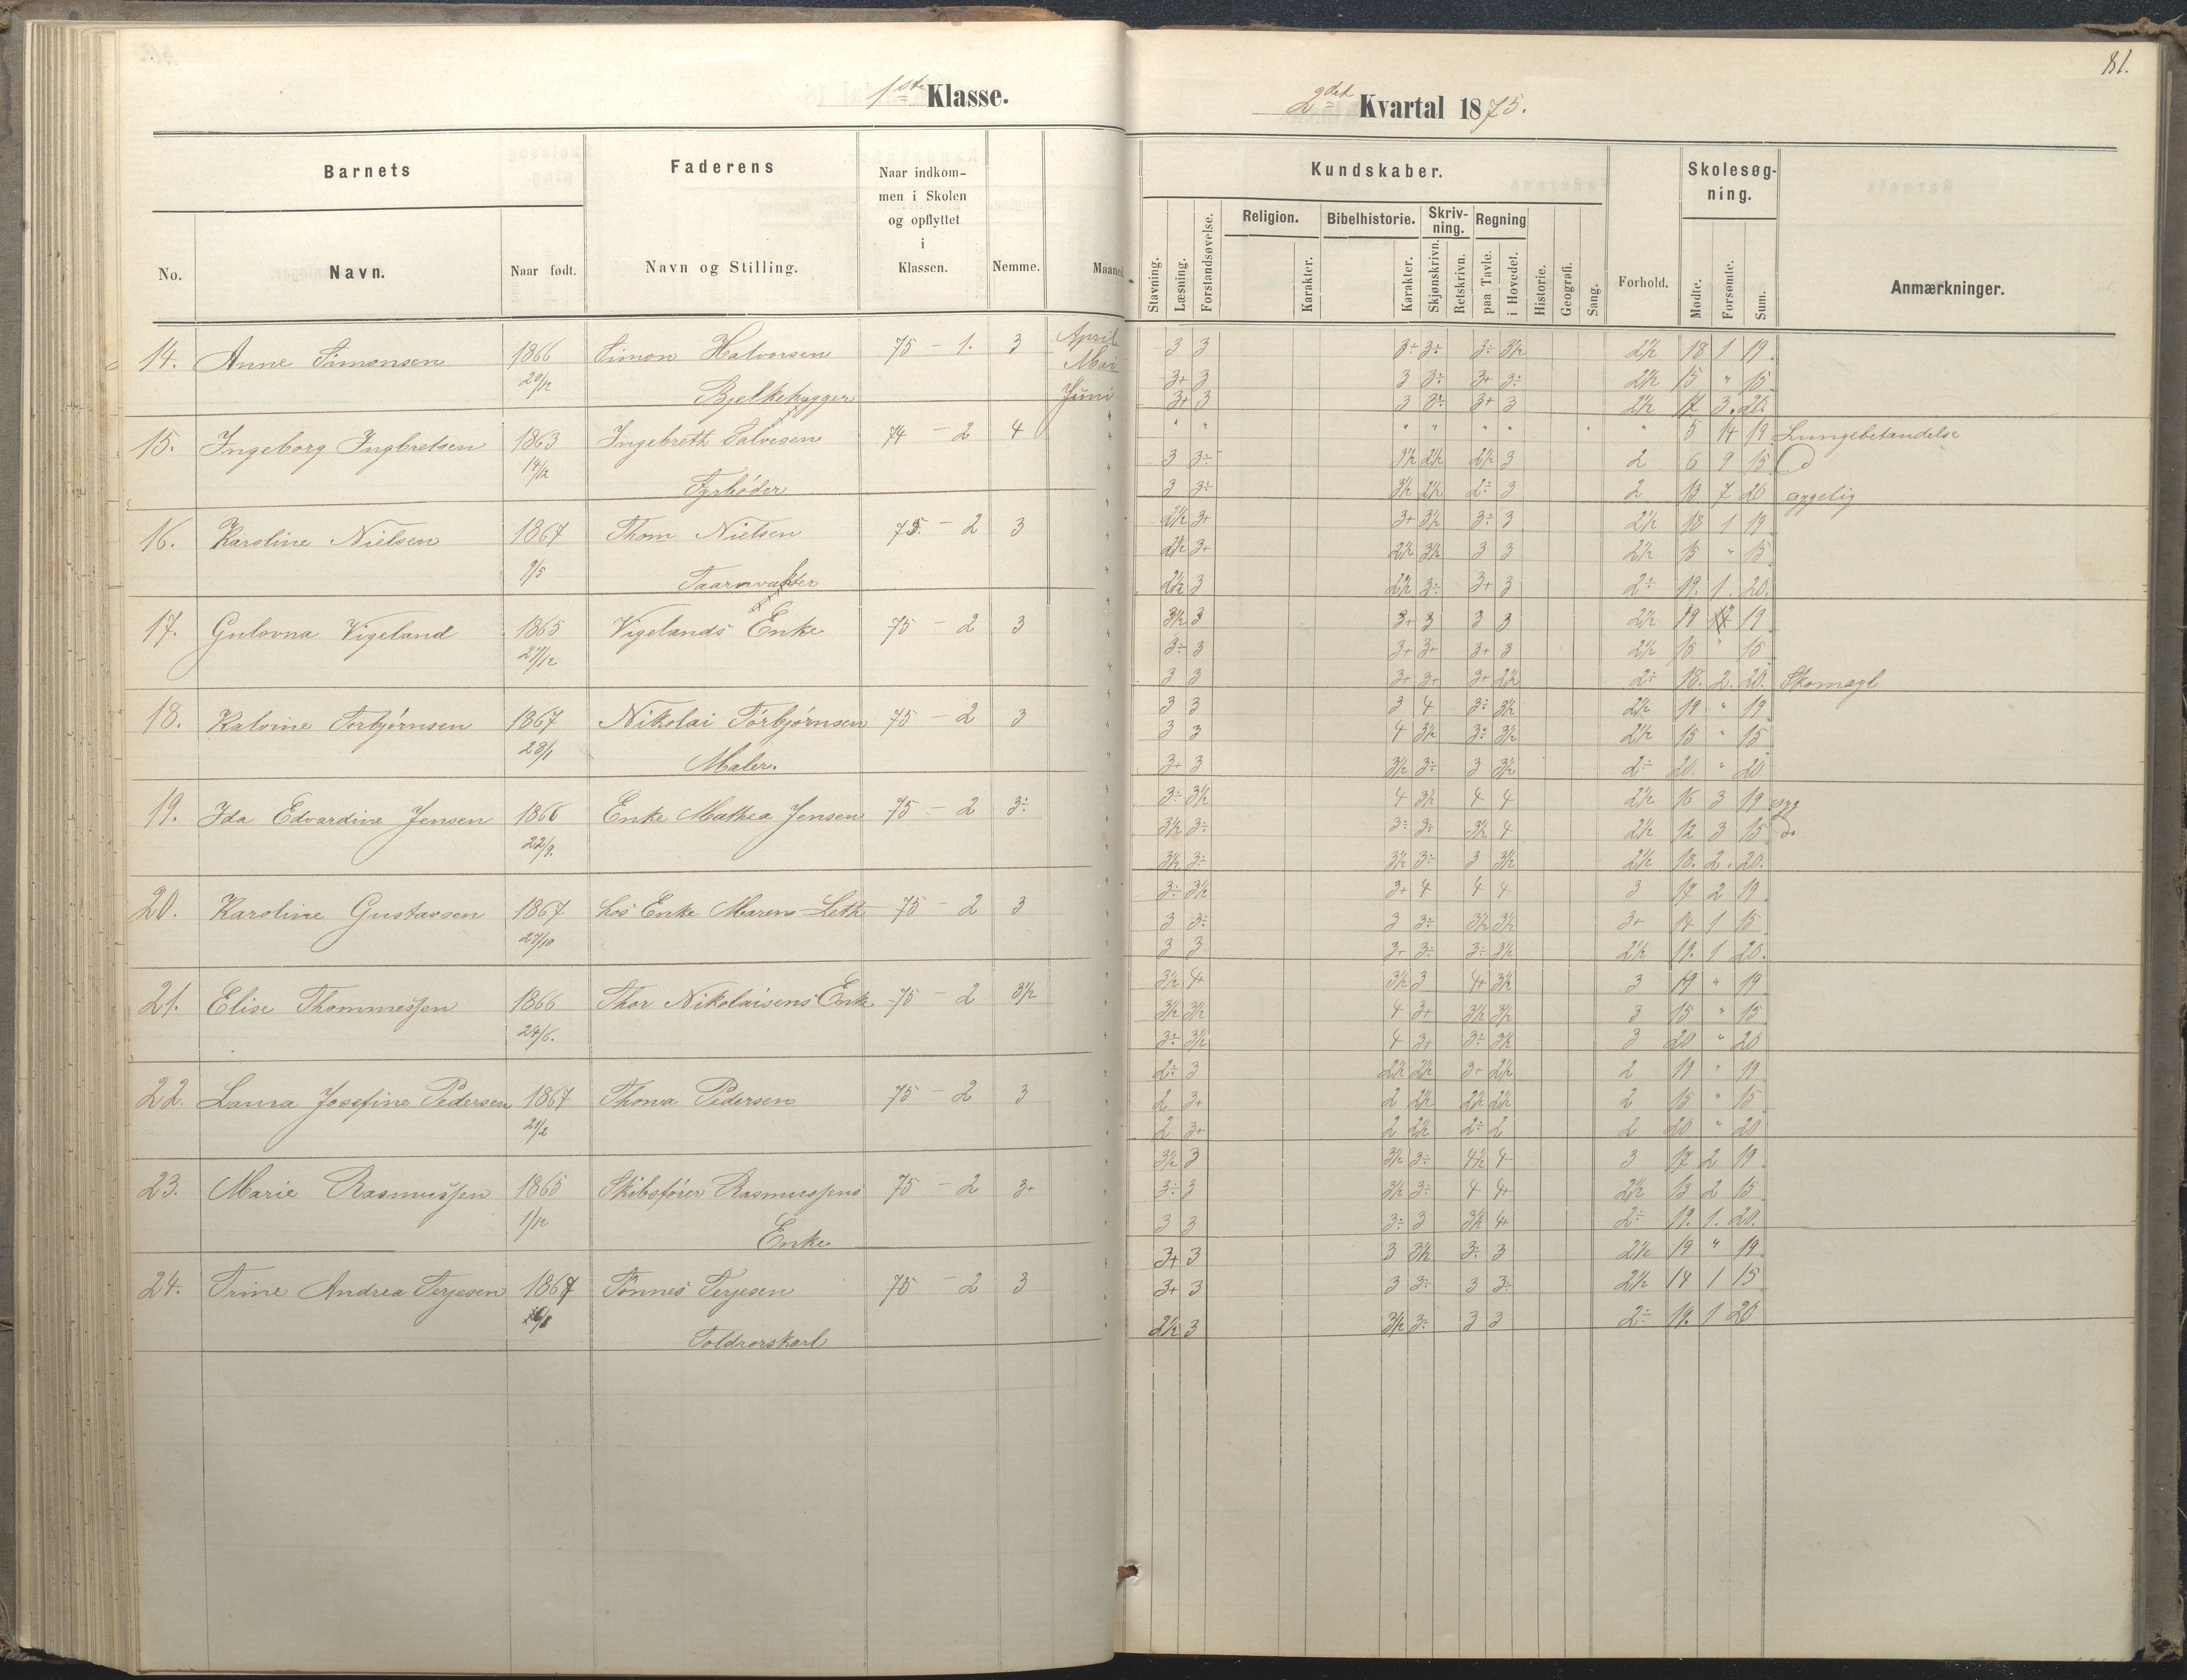 1ste Klasse.
Barnets
Faderens
Naar indkommen i Skolen og opflyttet i Klassen.
No.
Navn.
Naar født.
Navn og Stilling.
Nemme.
Maaned
14. Anne Simonsen 1866 Simon Halvorsen 75 - 1. 3 April
20/12 Bjelkehugger Mai
Juni
15. Ingeborg Ingbretsen 1863 Ingebreth Salvesen 74 - 2 4
14/12 Fyrbøder
16. Karoline Nielsen 1867 Thom Nielsen 75 - 2 3
9/5 Taarnvakter
17. Gulovna Vigeland 1865 Vigelands Enke 75 - 2 3
27/12
18. Kalvine Torbjørnsen 1867 Nikolai Torbjørnsen 75 - 2 3
28/1 Maler.
19. Ida Edvardine Jensen 1866 Enke Mathea Jensen 75 - 2 3÷
22/9.
20. Karoline Gustavsen 1867 hos Enke Maren Leth 75 - 2 3
27/10
21. Elise Thommessen 1866 Thor Nikolaisens Enke 75 - 2 3½
24/6.
22. Laura Josefine Pedersen 1867 Thona Pedersen 75 - 2 3
21/2
23. Marie Rasmussen 1865 Skibsfører Rasmussens 75 - 2 3+
1/12 Enke
24. Trine Andrea Terjesen 1867 Tønnes Terjesen 75 - 2 3
Toldrorskarl
81.
2det Kvartal 1875.
Kundskaber.
Skolesøgning.
Religion. Bibelhistorie. Skrivning. Regning
Stavning. Læsning. Forstandsøvelse. Karakter. Karakter. Skjønskrivn. Retskrivn. paa Tavle. i Hovedet. Historie. Geografi. Sang. Forhold. Mødte. Forsømte. Sum. Anmærkninger.
3 3 3÷ 3÷ 3÷ 3½ 2½ 18 1 19
3+ 3 3 3÷ 3+ 3÷ 2½ 15 " 15
3+ 3 3 3÷ 3+ 3 2½ 17 3. 20.
" " " " " " " " 5 14 19 Lungebetændelse
3 3÷ 3½ 2½ 2½ 3 2 6 9 15 do
3 3÷ 3½ 2½ 2÷ 3 2 13 7 20 sygelig
2½ 3+ 3+ 3½ 3÷ 3 2½ 18 1 19
2½ 3+ 2½ 3½ 3 3 2½ 15 " 15
2½ 3 2½ 3÷ 3+ 3 2÷ 19. 1. 20.
3½ 3 3+ 3 3 3 2½ 19 " 19
3÷ 3 3+ 3+ 3+ 3 2½ 15 " 15
3 3 3+ 3+ 3+ 2½ 2÷ 18. 2. 20. Skomagl
3 3 3 4 3÷ 3½ 2½ 19 " 19
3 3 4 3½ 3÷ 3½ 2½ 15 " 15
3+ 3 3½ 3÷ 3 3½ 2÷ 20. " 20
3÷ 3½ 4 3½ 4 4 2½ 16 3 19 syg
3½ 3÷ 3÷ 3÷ 3½ 4 2½ 12 3 15 do
3½ 3÷ 3½ 3÷ 3 3½ 2½ 18. 2. 20.
3÷ 3½ 3+ 4 4 4 3 17 2 19
3 3÷ 3 3÷ 3½ 3½ 3+ 14 1 15
3 3 3+ 3÷ 3÷ 3½ 2½ 19. 1 20.
3½ 4+ 3½ 3 4+ 3½ 3 19 " 19
3½ 3½ 4 3+ 3½ 3½ 3 15 " 15
3÷ 3½ 4 3+ 3÷ 3½ 3 20 " 20
2÷ 3 2½ 2½ 3+ 2½ 2 19 " 19
2 3+ 2 2½ 2½ 2½ 2 15 " 15
2 3+ 2 2½ 2÷ 2 2 20 " 20
3½ 3 3½ 3÷ 4½ 4 3 17 2 19
3÷ 3 3½ 3÷ 4 4+ 2½ 13 2 15
3 3 3÷ 3 3½ 4+ 2÷ 19. 1. 20.
3+ 3 3 3½ 3÷ 3 2½ 19 " 19
3+ 3 3 3÷ 3 3÷ 2½ 14 1 15
2½ 3 3½ 3÷ 3 3 2÷ 19. 1 20